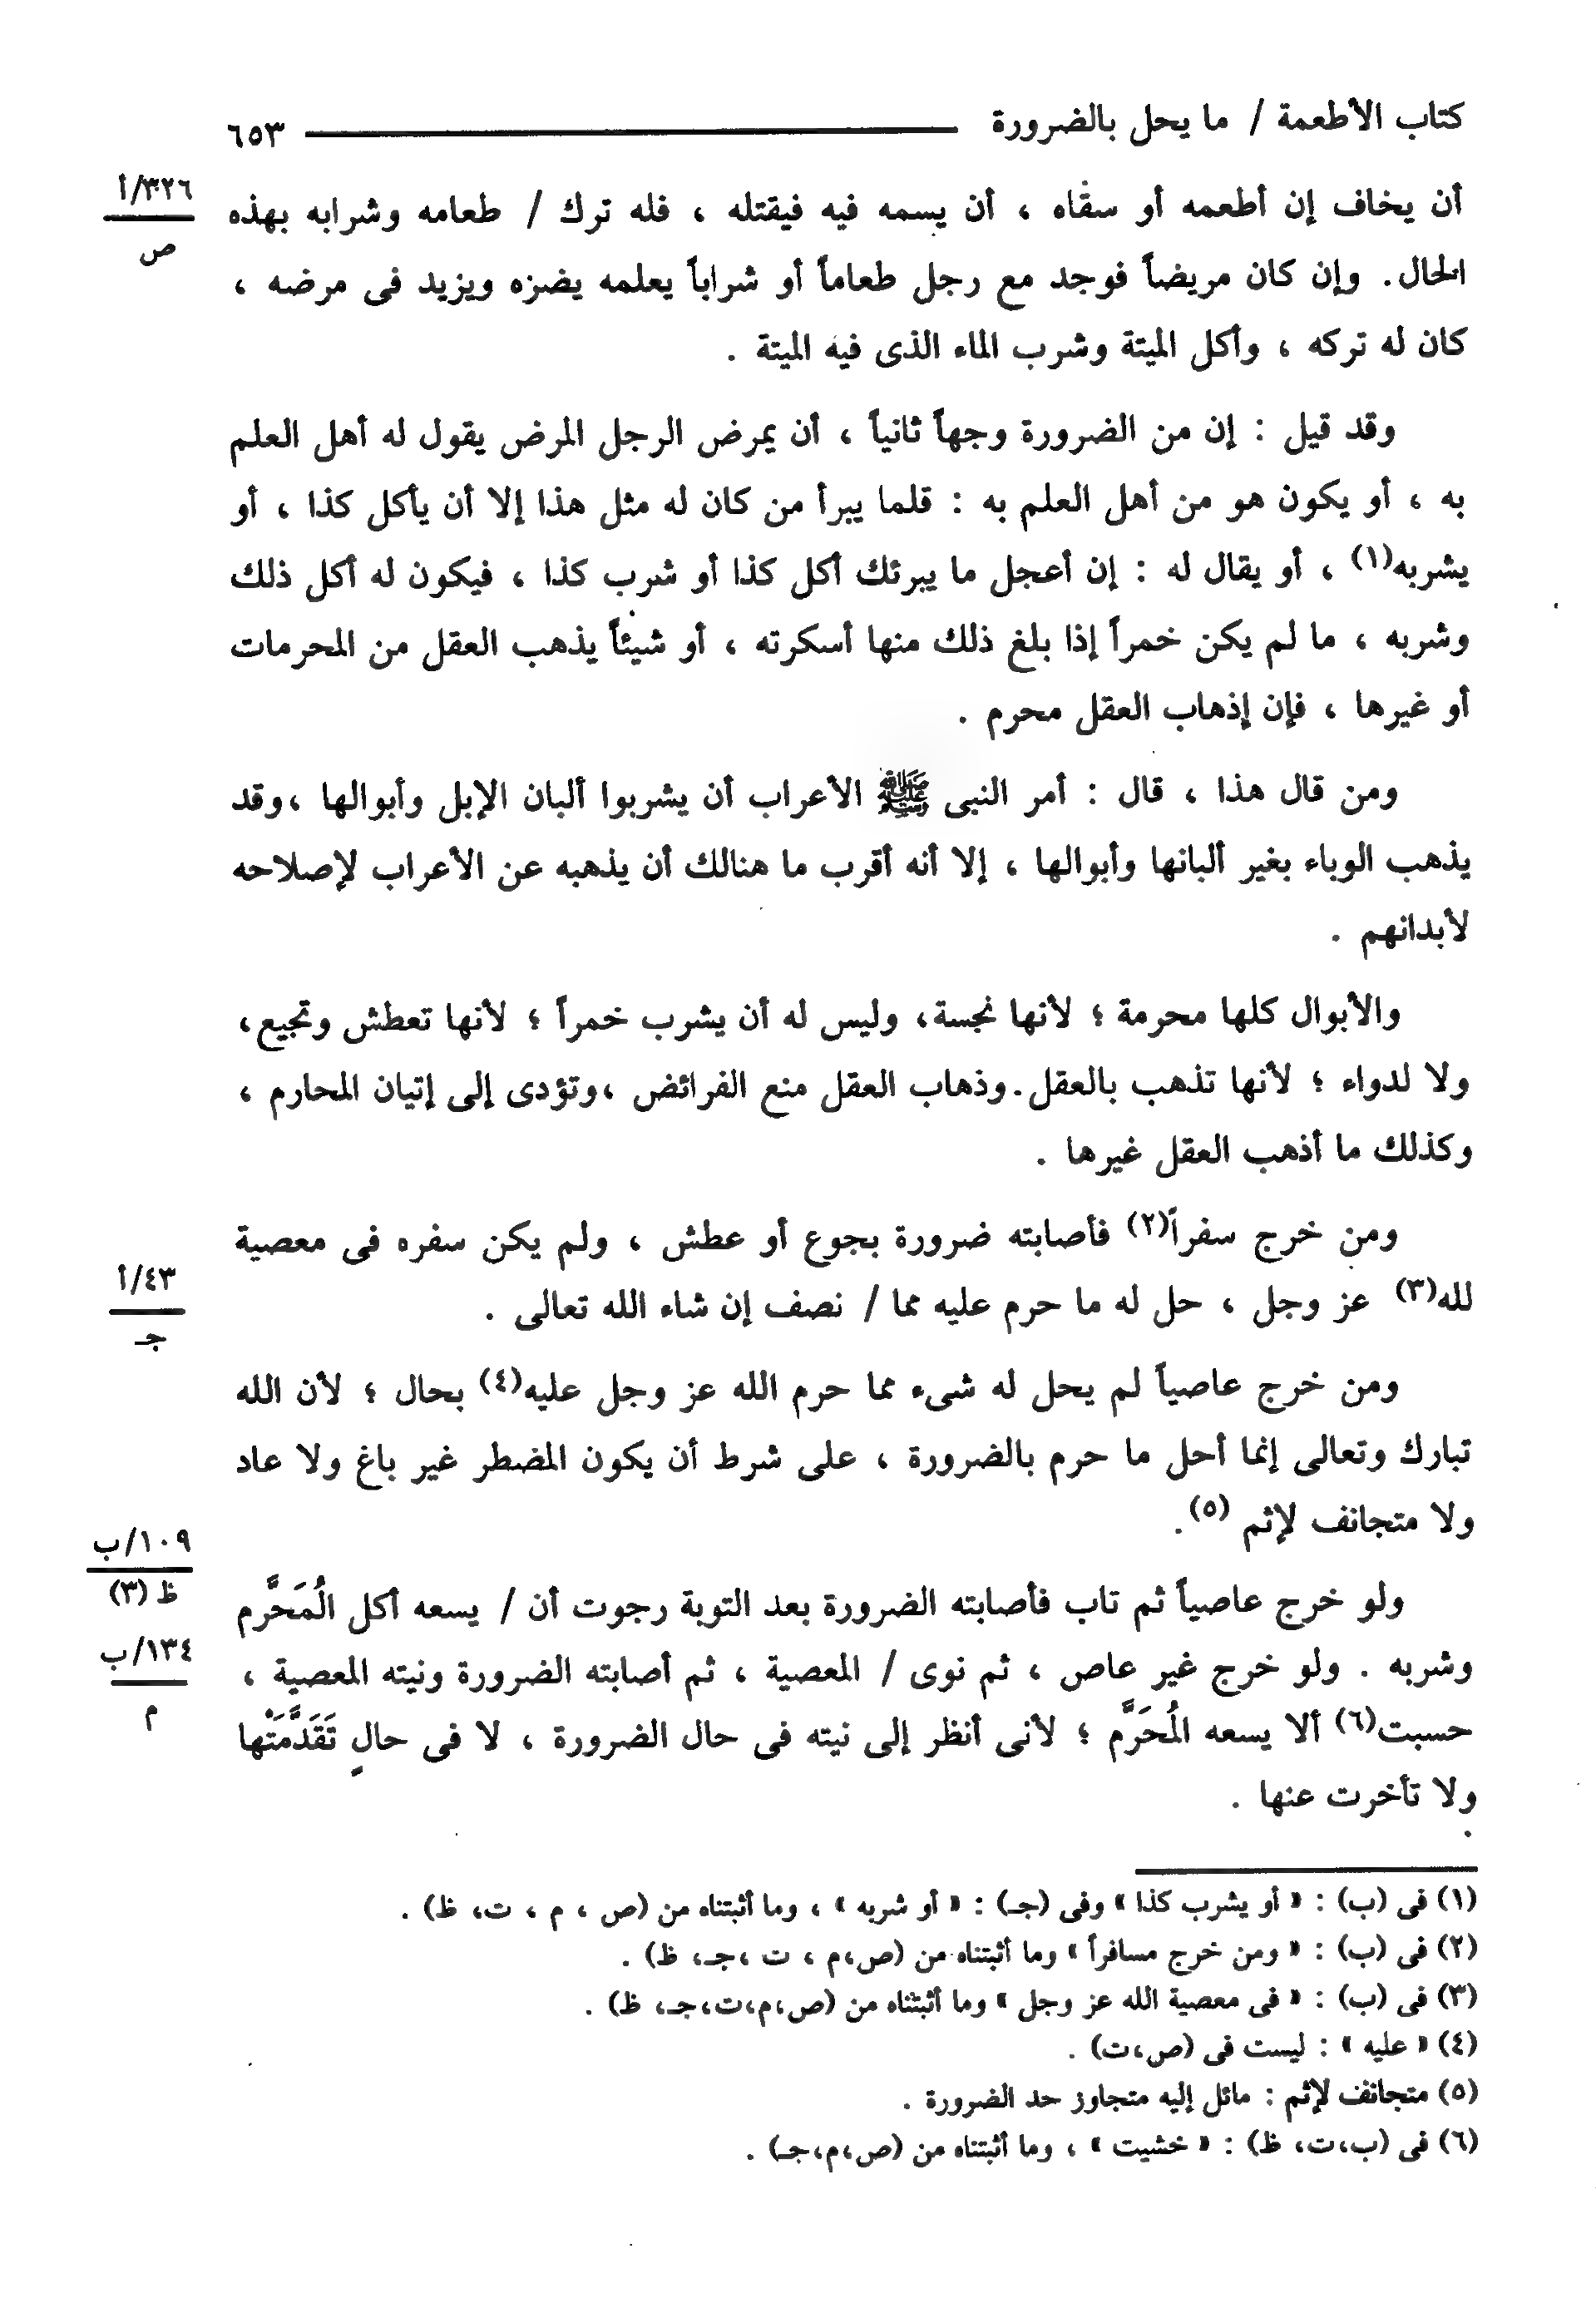 كتاب الأطعمة / ما يحل بالضرورة ٦٥٣
٣٢٦/أ
ص
أن يخاف إن أطعمه أو سقاه ، أن يسمه فيه فيقتله ، فله ترك / طعامه وشرابه بهذه
الحال. وإن كان مريضاً فوجد مع رجل طعاماً أو شراباً يعلمه يضره ويزيد فى مرضه ،
كان له تركه ، وأكل الميتة وشرب الماء الذى فيه الميتة .
وقد قيل : إن من الضرورة وجهاً ثانياً ، أن يمرض الرجل المرض يقول له أهل العلم
به ، أو يكون هو من أهل العلم به : قلما يبرأ من كان له مثل هذا إلا أن يأكل كذا ، أو
يشربه(١) ، أو يقال له : إن أعجل ما يبرئك أكل كذا أو شرب كذا ، فيكون له أكل ذلك
وشربه ، ما لم يكن خمراً إذا بلغ ذلك منها أسكرته ، أو شيئاً يذهب العقل من المحرمات
أو غيرها ، فإن إذهاب العقل محرم .
ومن قال هذا ، قال : أمر النبى ﷺ الأعراب أن يشربوا ألبان الإبل وأبوالها ،وقد
يذهب الوباء بغير ألبانها وأبوالها ، إلا أنه أقرب ما هنالك أن يذهبه عن الأعراب لإصلاحه
لأبدانهم .
والأبوال كلها محرمة ؛ لأنها نجسة، وليس له أن يشرب خمراً ؛ لأنها تعطش وتجيع،
ولا لدواء ؛ لأنها تذهب بالعقل.وذهاب العقل منع الفرائض ،وتؤدى إلى إتيان المحارم ،
وكذلك ما أذهب العقل غيرها .
ومن خرج سفراً(٢) فأصابته ضرورة بجوع أو عطش ، ولم يكن سفره فى معصية
لله(٣) عز وجل ، حل له ما حرم عليه مما / نصف إن شاء الله تعالى .
٤٣/أ
جـ
ومن خرج عاصياً لم يحل له شىء مما حرم الله عز وجل عليه(٤) بحال ؛ لأن الله
تبارك وتعالى إنما أحل ما حرم بالضرورة ، على شرط أن يكون المضطر غير باغ ولا عاد
ولا متجانف لإثم (٥).
١٠٩/ب
ظ (٣)
ولو خرج عاصياً ثم تاب فأصابته الضرورة بعد التوبة رجوت أن / يسعه أكل الُمَحَرَّم
وشربه . ولو خرج غير عاص ، ثم نوى / المعصية ، ثم أصابته الضرورة ونيته المعصية ،
١٣٤/ب
م
حسبت(٦) ألا يسعه المُحَرَّم ؛ لأنى أنظر إلى نيته فى حال الضرورة ، لا فى حالٍ تَقَدَّمَتْها
ولا تأخرت عنها .
(١) فى (ب) : « أو يشرب كذا » وفى (جـ) : « أو شربه » ، وما أثبتناه من (ص ، م ، ت، ظ) .
(٢) فى (ب) : « ومن خرج مسافراً » وما أثبتناه من (ص،م ، ت ،جـ، ظ) .
(٣) فى (ب) : « فى معصية الله عز وجل » وما أثبتناه من (ص،م،ت،جـ، ظ) .
(٤) « عليه » : ليست فى (ص،ت) .
(٥) متجانف لإثم : مائل إليه متجاوز حد الضرورة .
(٦) فى (ب،ت، ظ) : « خشيت » ، وما أثبتناه من (ص،م،جـ) .